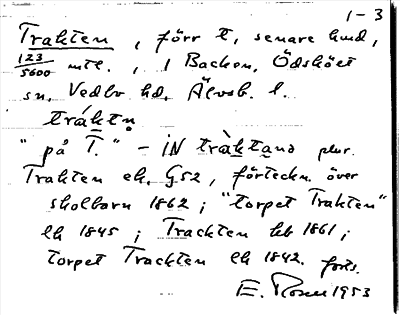 1-3
Trakten, förr t, senare hmd,
123/5600 mtl., i Backen, Ödsköst
sn, Vedbo hd, Älvsb. l.
tráktn̥
"på T." - IN tràktanə plur.
Trakten ek. G52, förteckn. över
skolbarn 1862; "torpet Trakten"
lh 1845; Trackten hb 1861;
torpet Trackten lh 1842. forts.
E. Rosell 1953